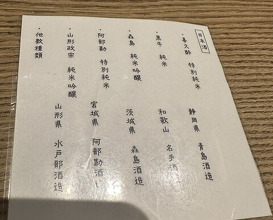 日本酒
・喜久酔 特別純米 静岡県 青島酒造
・黒牛 純米 和歌山 名手酒
・森島 純米吟醸 茨城県 森島酒造
・阿部勘 特別純米 宮城県 阿部勘酒造
・山形政宗 純米吟醸 山形県 水戸部酒造
・他数種類